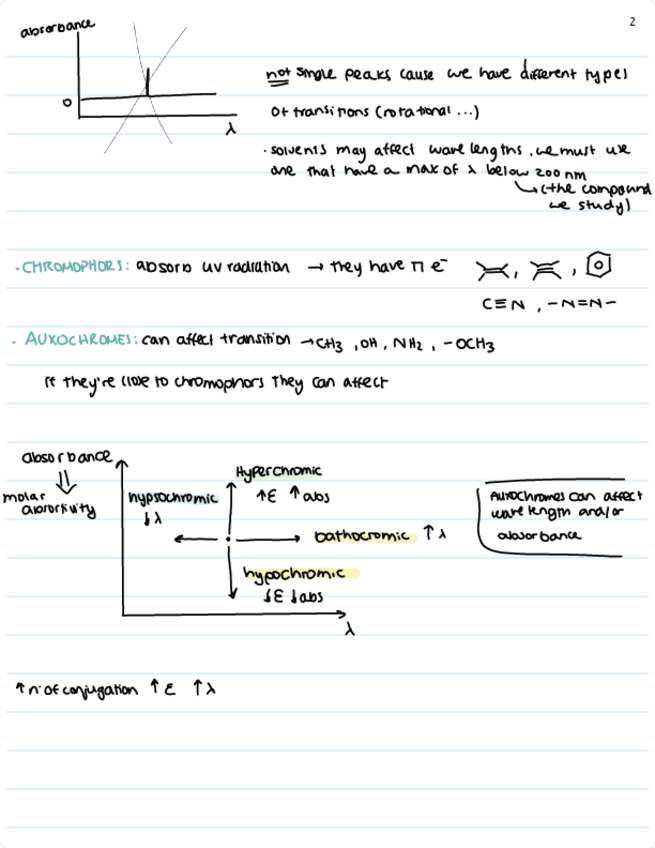 2
absorbance
0
λ
not single peaks cause we have different types
of transitions (rotational ...)
· solvents may affect wave lengths. we must use
one that have a max of λ below 200 nm
(the compound
we study)
· CHROMOPHORS: absorb uv radiation → they have π e⁻
, ,
C≡N , -N=N-
· AUXOCHROMES: can affect transition → CH₃ , OH , NH₂ , -OCH₃
if they're close to chromophors they can affect
absorbance
molar
absortivity
Hyperchromic
↑ε ↑abs
hypsochromic
↓λ
bathocromic ↑λ
hypochromic
↓ε ↓abs
λ
Auxochromes can affect
wave length and/or
absorbance
↑ n° of conjugation ↑ε ↑λ